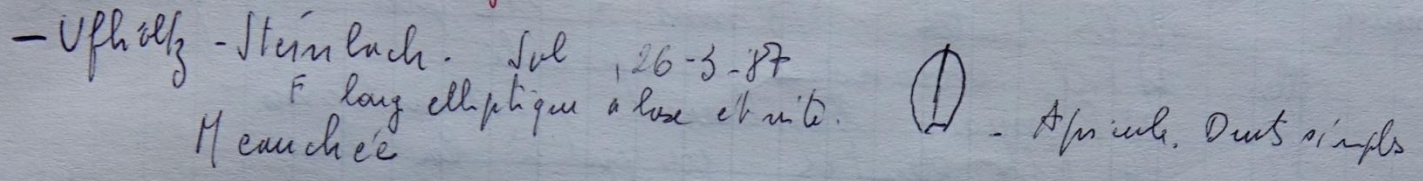 - Ufholtz - Steinbach. Sol, 26-3-87
F long elliptique à base étroite. - Apicule. Dents simples
M